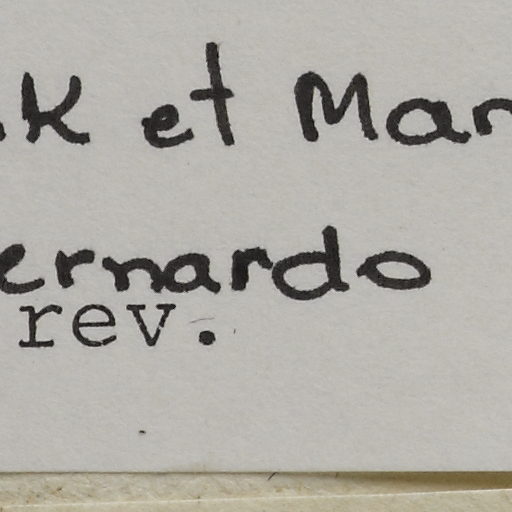 k et Mar
ernardo
rev.